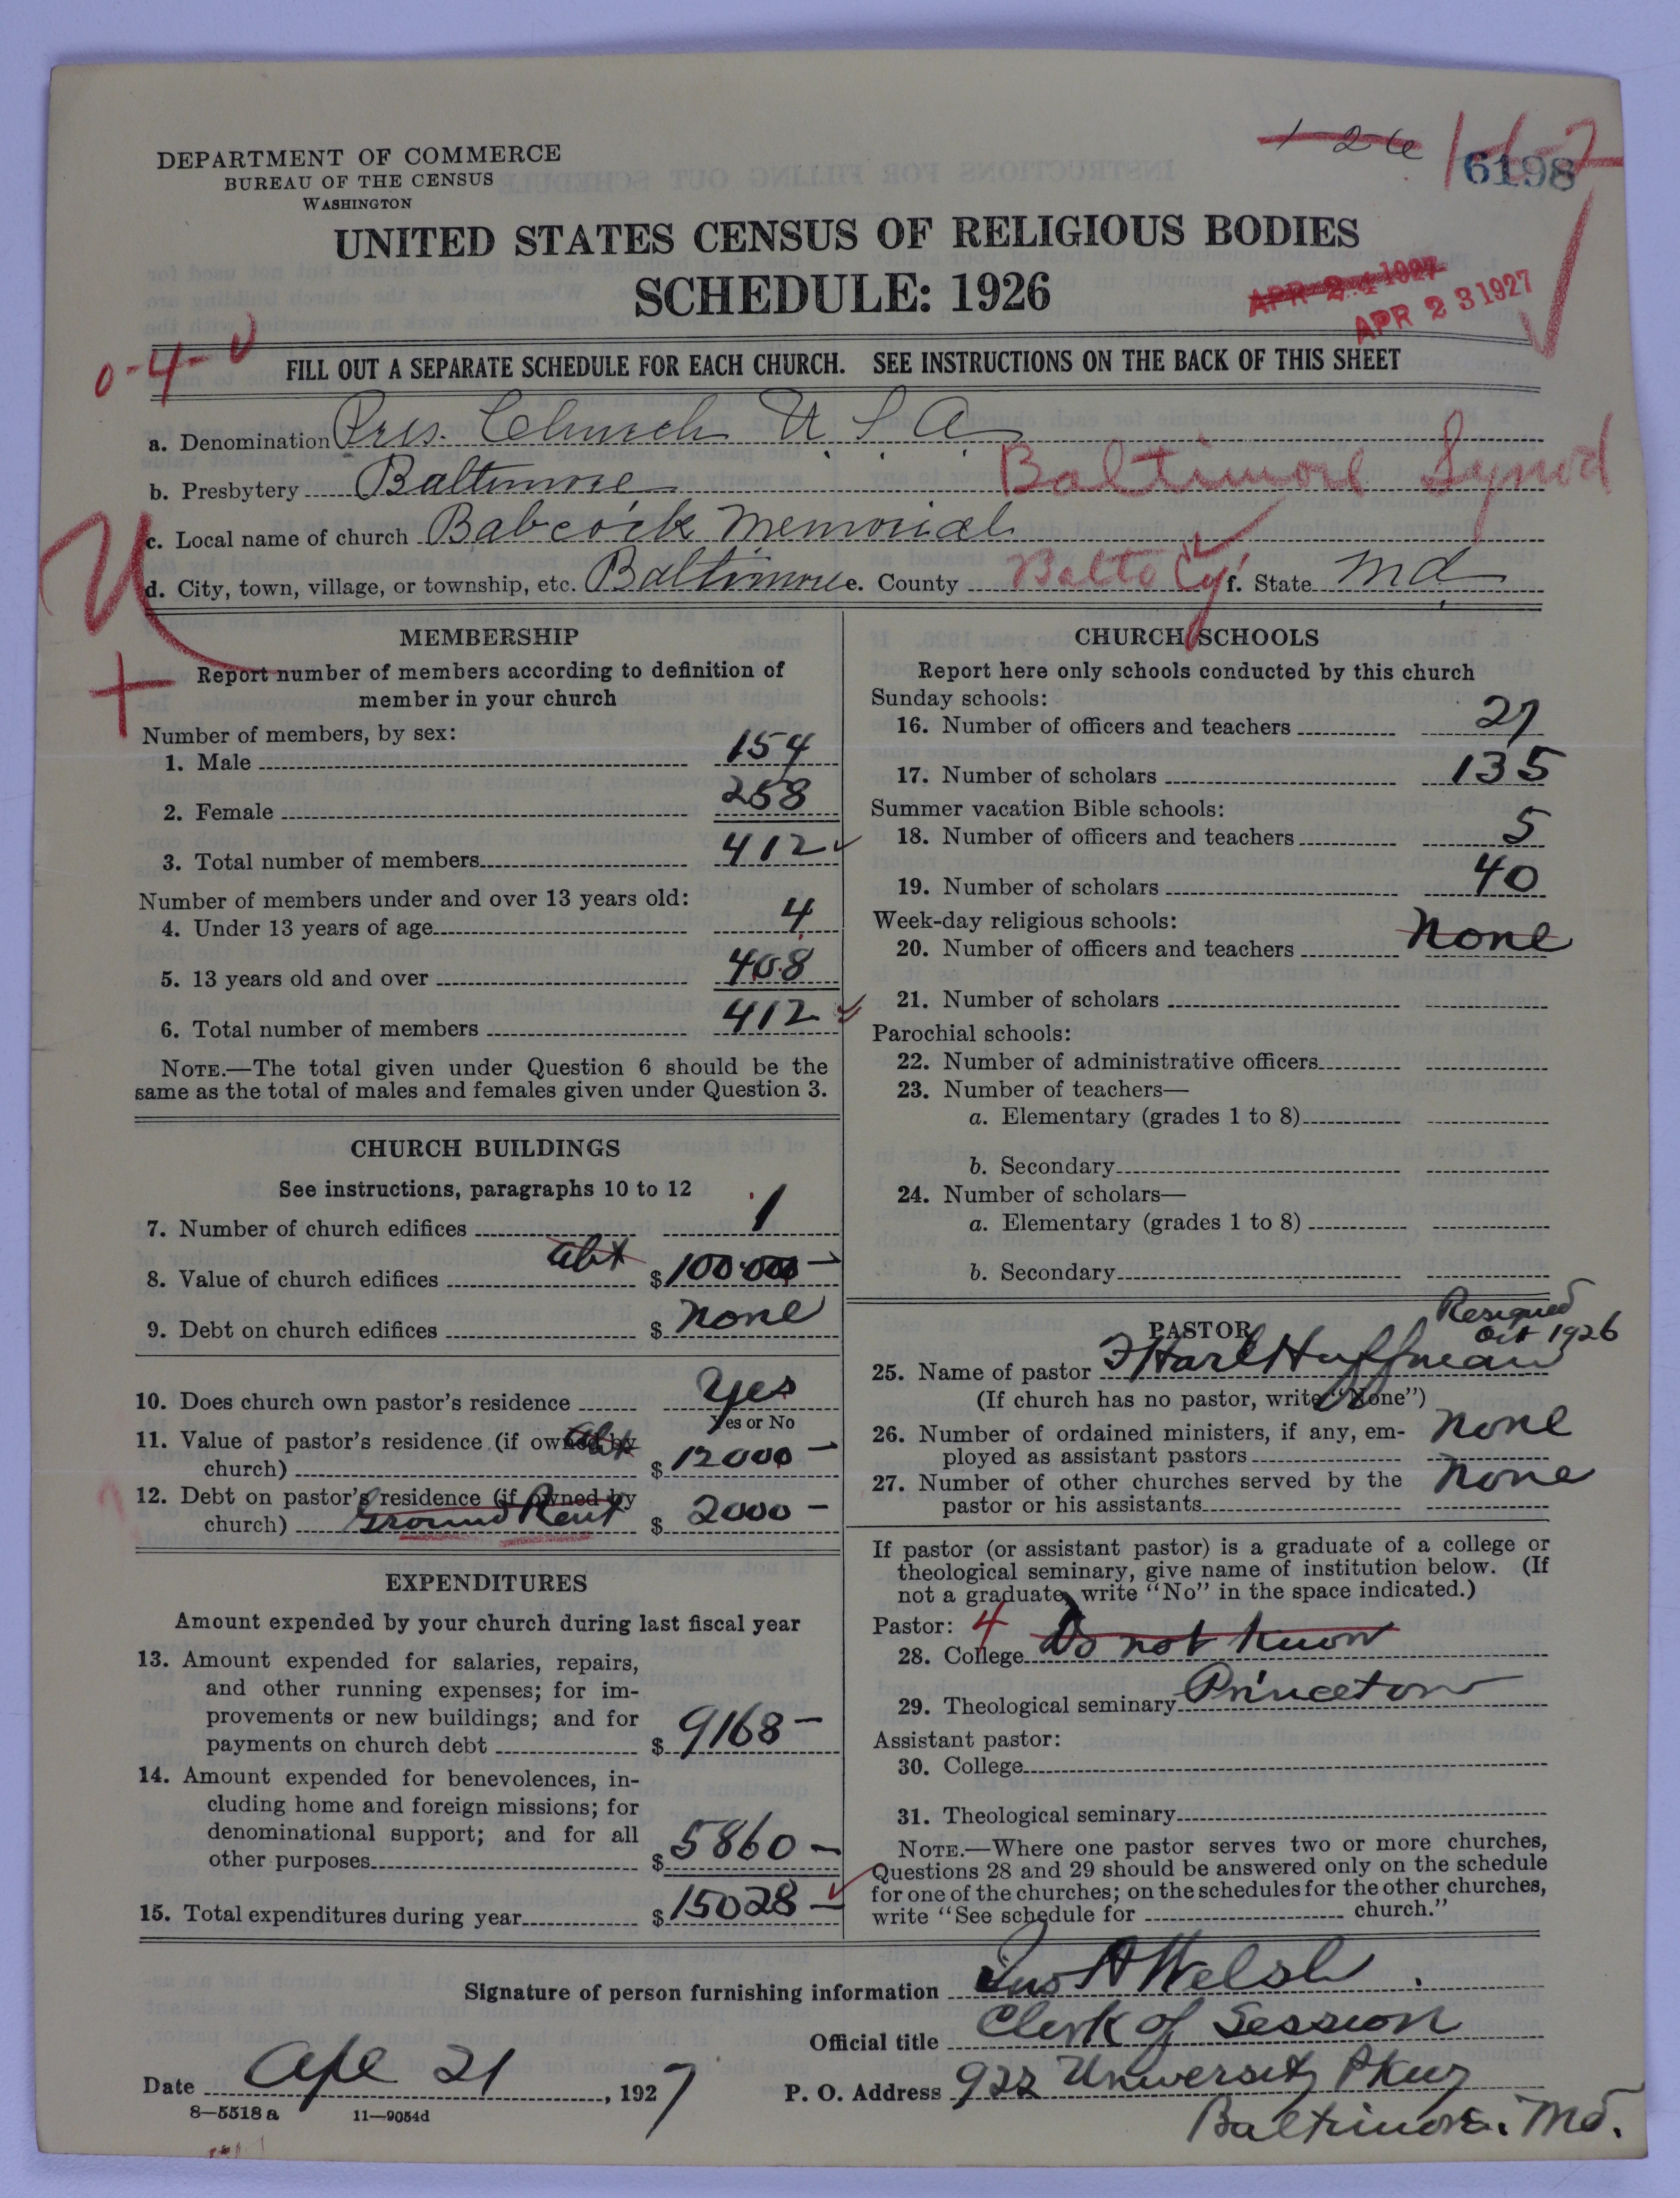 DEPARTMENT OF COMMERCE
BUREAU OF THE CENSUS
WASHINGTON
1-26
6198
UNITED STATES CENSUS OF RELIGIOUS BODIES
SCHEDULE: 1926
APR 24 1927
APR 23 1927
0-4-0
FILL OUT A SEPARATE SCHEDULE FOR EACH CHURCH. SEE INSTRUCTIONS ON THE BACK OF THIS SHEET
a. Denomination Pres. Church U. S. A.
b. Presbytery Baltimore Baltimore Synod
c. Local name of church Babcock Memorial
d. City, town, village, or township, etc. Baltimore e. County Balto Cy f. State Md
MEMBERSHIP
Report number of members according to definition of
member in your church
Number of members, by sex:
1. Male 154
2. Female 258
3. Total number of members 412
Number of members under and over 13 years old:
4. Under 13 years of age 4
5. 13 years old and over 408
6. Total number of members 412
NOTE.—The total given under Question 6 should be the
same as the total of males and females given under Question 3.
CHURCH BUILDINGS
See instructions, paragraphs 10 to 12
7. Number of church edifices 1
abt
8. Value of church edifices $100.000 -
9. Debt on church edifices $ None
10. Does church own pastor's residence Yes
Yes or No
11. Value of pastor's residence (if owned by abt
church) $ 12000 -
12. Debt on pastor's residence (if owned by
church) Ground Rent $ 2000 -
EXPENDITURES
Amount expended by your church during last fiscal year
13. Amount expended for salaries, repairs,
and other running expenses; for im-
provements or new buildings; and for
payments on church debt $ 9168 -
14. Amount expended for benevolences, in-
cluding home and foreign missions; for
denominational support; and for all
other purposes $ 5860 -
15. Total expenditures during year $ 15028 -
CHURCH SCHOOLS
Report here only schools conducted by this church
Sunday schools:
16. Number of officers and teachers 27
17. Number of scholars 135
Summer vacation Bible schools:
18. Number of officers and teachers 5
19. Number of scholars 40
Week-day religious schools:
20. Number of officers and teachers None
21. Number of scholars
Parochial schools:
22. Number of administrative officers
23. Number of teachers—
a. Elementary (grades 1 to 8)
b. Secondary
24. Number of scholars—
a. Elementary (grades 1 to 8)
b. Secondary
Resigned
PASTOR Oct 1926
25. Name of pastor Harl Huffman
(If church has no pastor, write "None")
26. Number of ordained ministers, if any, em-
ployed as assistant pastors None
27. Number of other churches served by the
pastor or his assistants None
If pastor (or assistant pastor) is a graduate of a college or
theological seminary, give name of institution below. (If
not a graduate, write "No" in the space indicated.)
Pastor: 4
28. College Do not know
29. Theological seminary Princeton
Assistant pastor:
30. College
31. Theological seminary
NOTE.—Where one pastor serves two or more churches,
Questions 28 and 29 should be answered only on the schedule
for one of the churches; on the schedules for the other churches,
write "See schedule for church."
Signature of person furnishing information Jno A Welsh
Official title Clerk of Session
Date Apl 21, 1927 P. O. Address 922 University Pkwy
Baltimore. Md.
8—5518 a 11—9054d